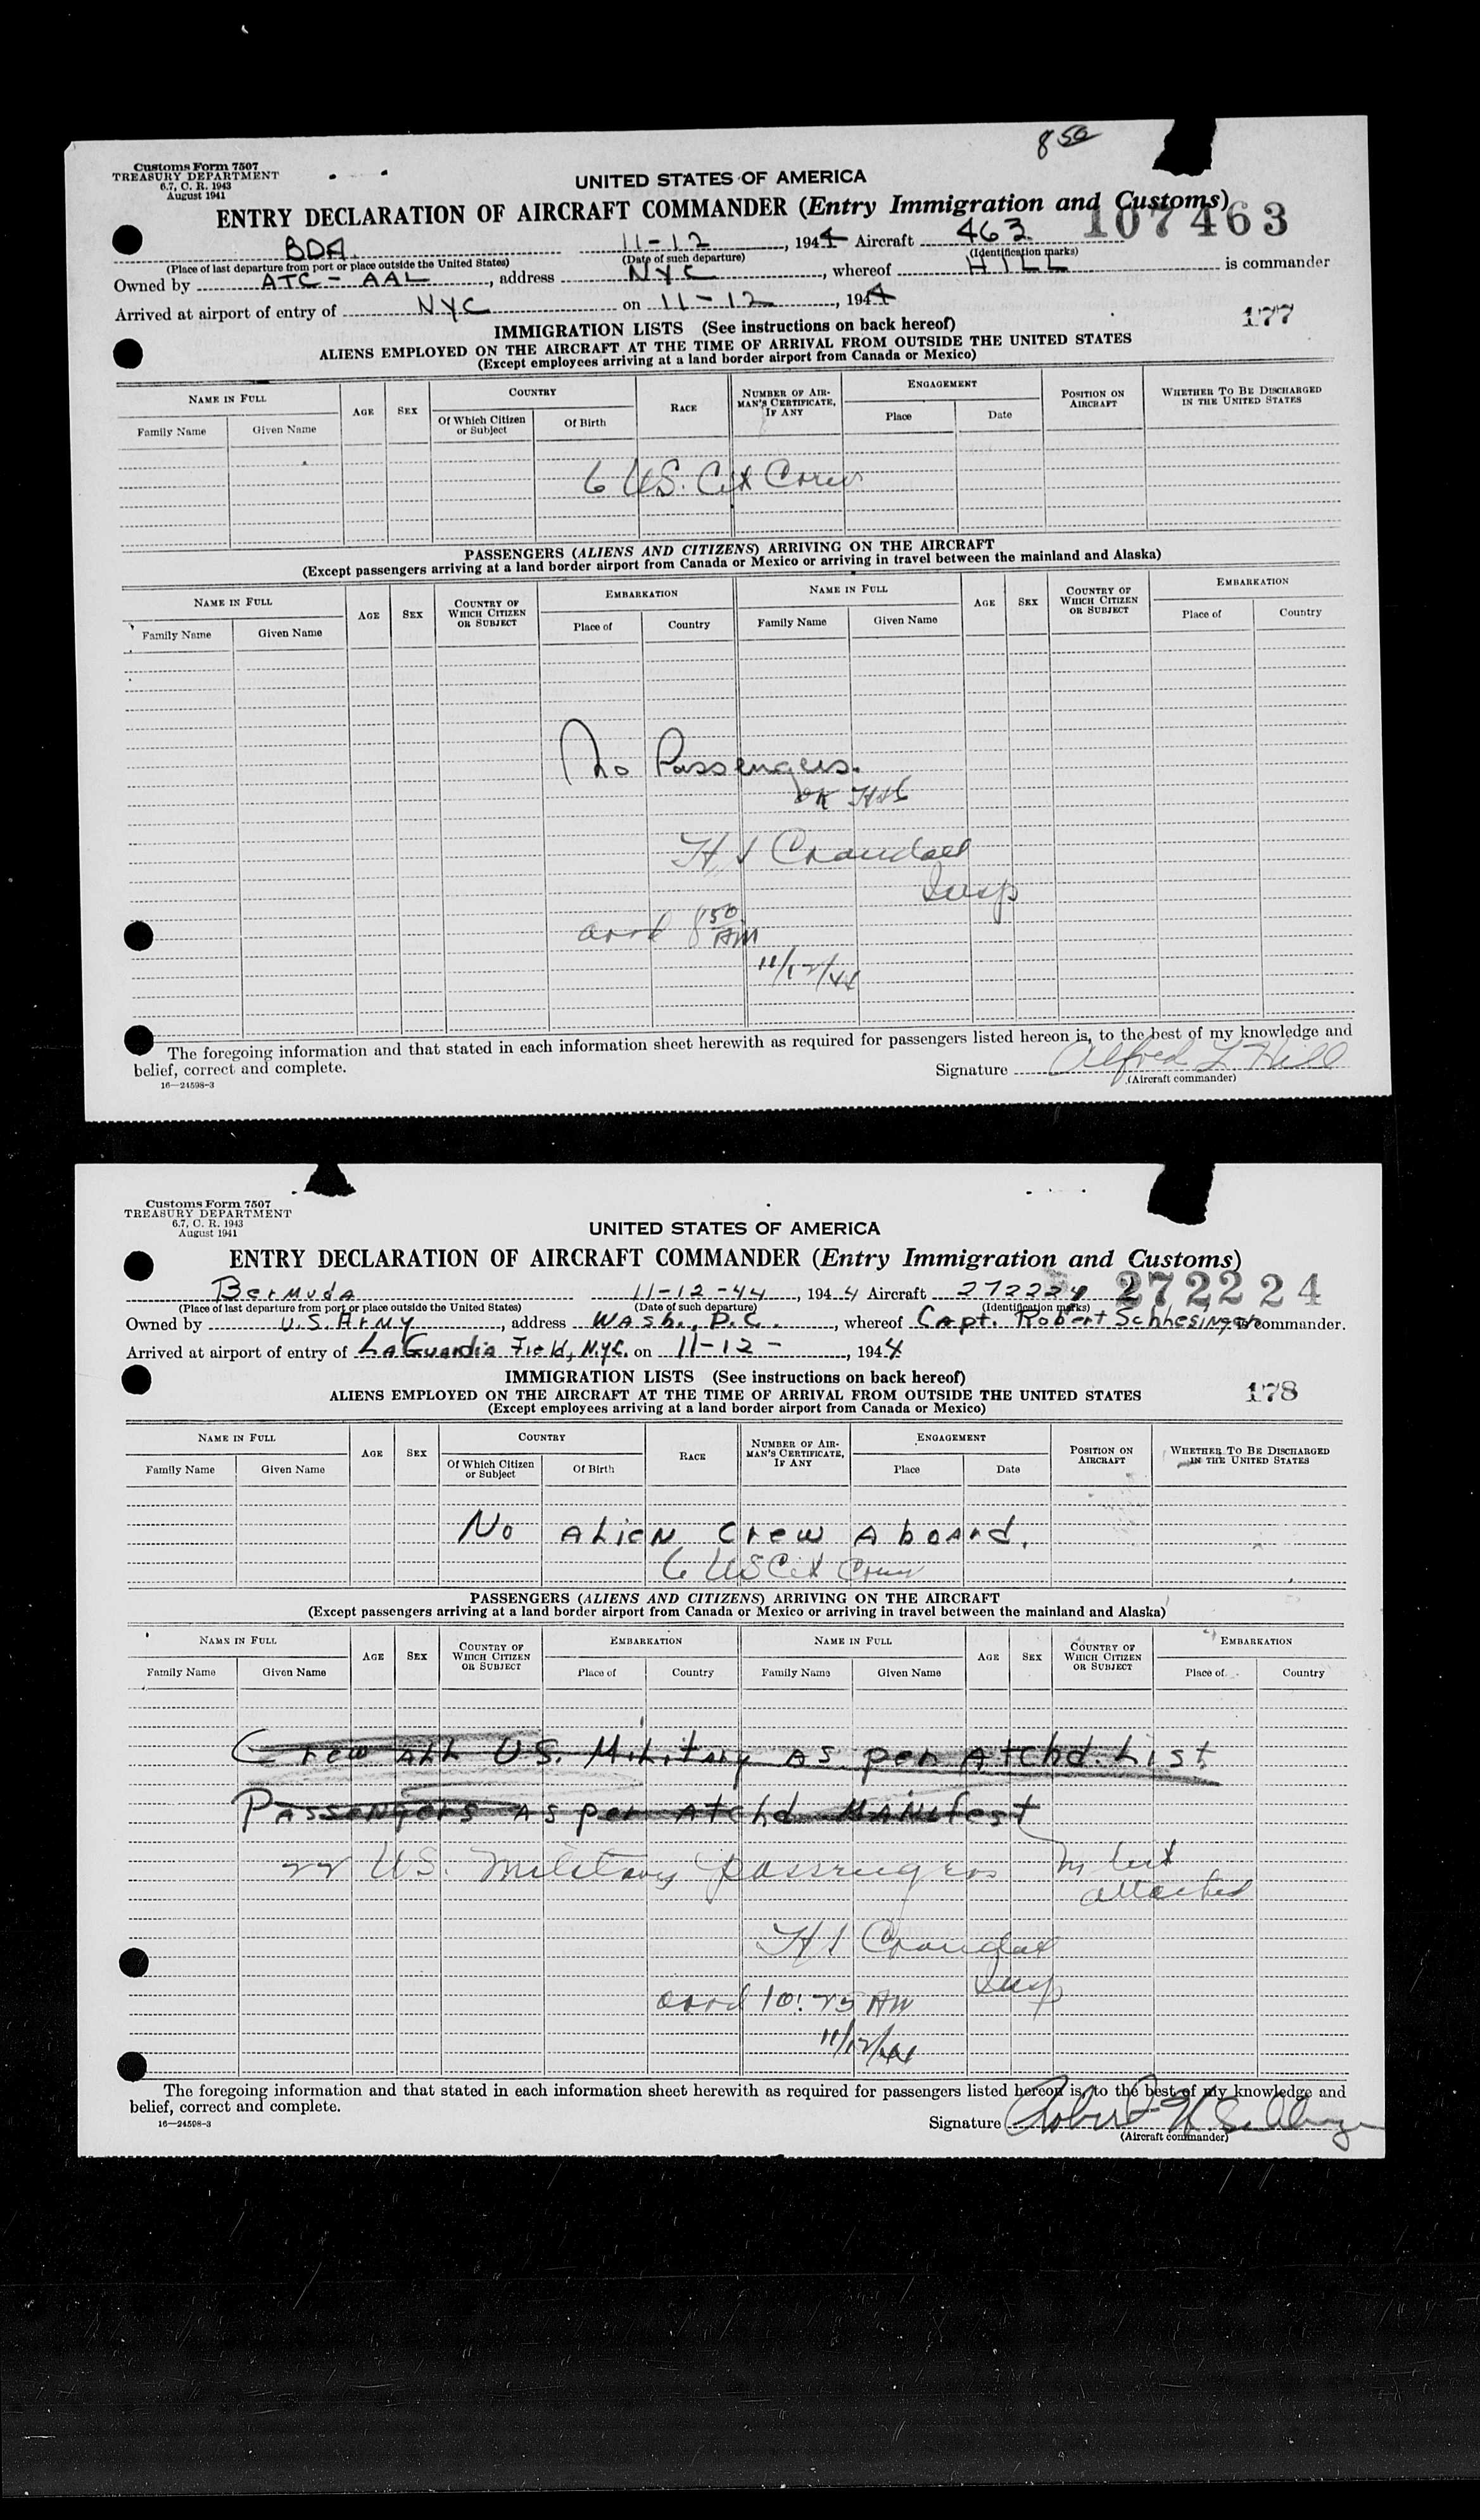 8 50
Customs Form 7507
TREASURY DEPARTMENT
6.7, C. R. 1943
August 1941
UNITED STATES OF AMERICA
ENTRY DECLARATION OF AIRCRAFT COMMANDER (Entry Immigration and Customs)
107463
BDA. 11-12, 1944 Aircraft 463
(Place of last departure from port or place outside the United States) (Date of such departure) (Identification marks)
Owned by ATC - AAL, address NYC, whereof HILL is commander
Arrived at airport of entry of NYC on 11-12, 1944
177
IMMIGRATION LISTS (See instructions on back hereof)
ALIENS EMPLOYED ON THE AIRCRAFT AT THE TIME OF ARRIVAL FROM OUTSIDE THE UNITED STATES
(Except employees arriving at a land border airport from Canada or Mexico)
NAME IN FULL AGE SEX COUNTRY RACE NUMBER OF AIRMAN'S CERTIFICATE, IF ANY ENGAGEMENT POSITION ON AIRCRAFT WHETHER TO BE DISCHARGED IN THE UNITED STATES
Family Name Given Name Of Which Citizen or Subject Of Birth Place Date
6 US. Cit Crew
PASSENGERS (ALIENS AND CITIZENS) ARRIVING ON THE AIRCRAFT
(Except passengers arriving at a land border airport from Canada or Mexico or arriving in travel between the mainland and Alaska)
NAME IN FULL AGE SEX COUNTRY OF WHICH CITIZEN OR SUBJECT EMBARKATION NAME IN FULL AGE SEX COUNTRY OF WHICH CITIZEN OR SUBJECT EMBARKATION
Family Name Given Name Place of Country Family Name Given Name Place of Country
No Passengers.
OK
H S Crandall
Insp
arrd 8 50 AM
11/12/44
The foregoing information and that stated in each information sheet herewith as required for passengers listed hereon is, to the best of my knowledge and
belief, correct and complete.
Signature Alfred L Hill
16—24598-3
(Aircraft commander)
Customs Form 7507
TREASURY DEPARTMENT
6.7, C. R. 1943
August 1941
UNITED STATES OF AMERICA
ENTRY DECLARATION OF AIRCRAFT COMMANDER (Entry Immigration and Customs)
Bermuda 11-12-44, 1944 Aircraft 272224 272224
(Place of last departure from port or place outside the United States) (Date of such departure) (Identification marks)
Owned by U.S. Army, address Wash., D.C., whereof Capt. Robert Schhesinger is commander.
Arrived at airport of entry of LaGuardia Field, N.Y.C. on 11-12-, 1944
178
IMMIGRATION LISTS (See instructions on back hereof)
ALIENS EMPLOYED ON THE AIRCRAFT AT THE TIME OF ARRIVAL FROM OUTSIDE THE UNITED STATES
(Except employees arriving at a land border airport from Canada or Mexico)
NAME IN FULL AGE SEX COUNTRY RACE NUMBER OF AIRMAN'S CERTIFICATE, IF ANY ENGAGEMENT POSITION ON AIRCRAFT WHETHER TO BE DISCHARGED IN THE UNITED STATES
Family Name Given Name Of Which Citizen or Subject Of Birth Place Date
No Alien Crew Aboard.
6 US Cit Crew
PASSENGERS (ALIENS AND CITIZENS) ARRIVING ON THE AIRCRAFT
(Except passengers arriving at a land border airport from Canada or Mexico or arriving in travel between the mainland and Alaska)
NAME IN FULL AGE SEX COUNTRY OF WHICH CITIZEN OR SUBJECT EMBARKATION NAME IN FULL AGE SEX COUNTRY OF WHICH CITIZEN OR SUBJECT EMBARKATION
Family Name Given Name Place of Country Family Name Given Name Place of Country
Crew All U.S. Military As per Atchd. List
Passengers As per Atchd Manifest
22 U.S. Military passengers
attached
H S Crandall
Insp
arrd 10:25 AM
11/12/44
The foregoing information and that stated in each information sheet herewith as required for passengers listed hereon is, to the best of my knowledge and
belief, correct and complete.
Signature Robert
16—24598-3
(Aircraft commander)